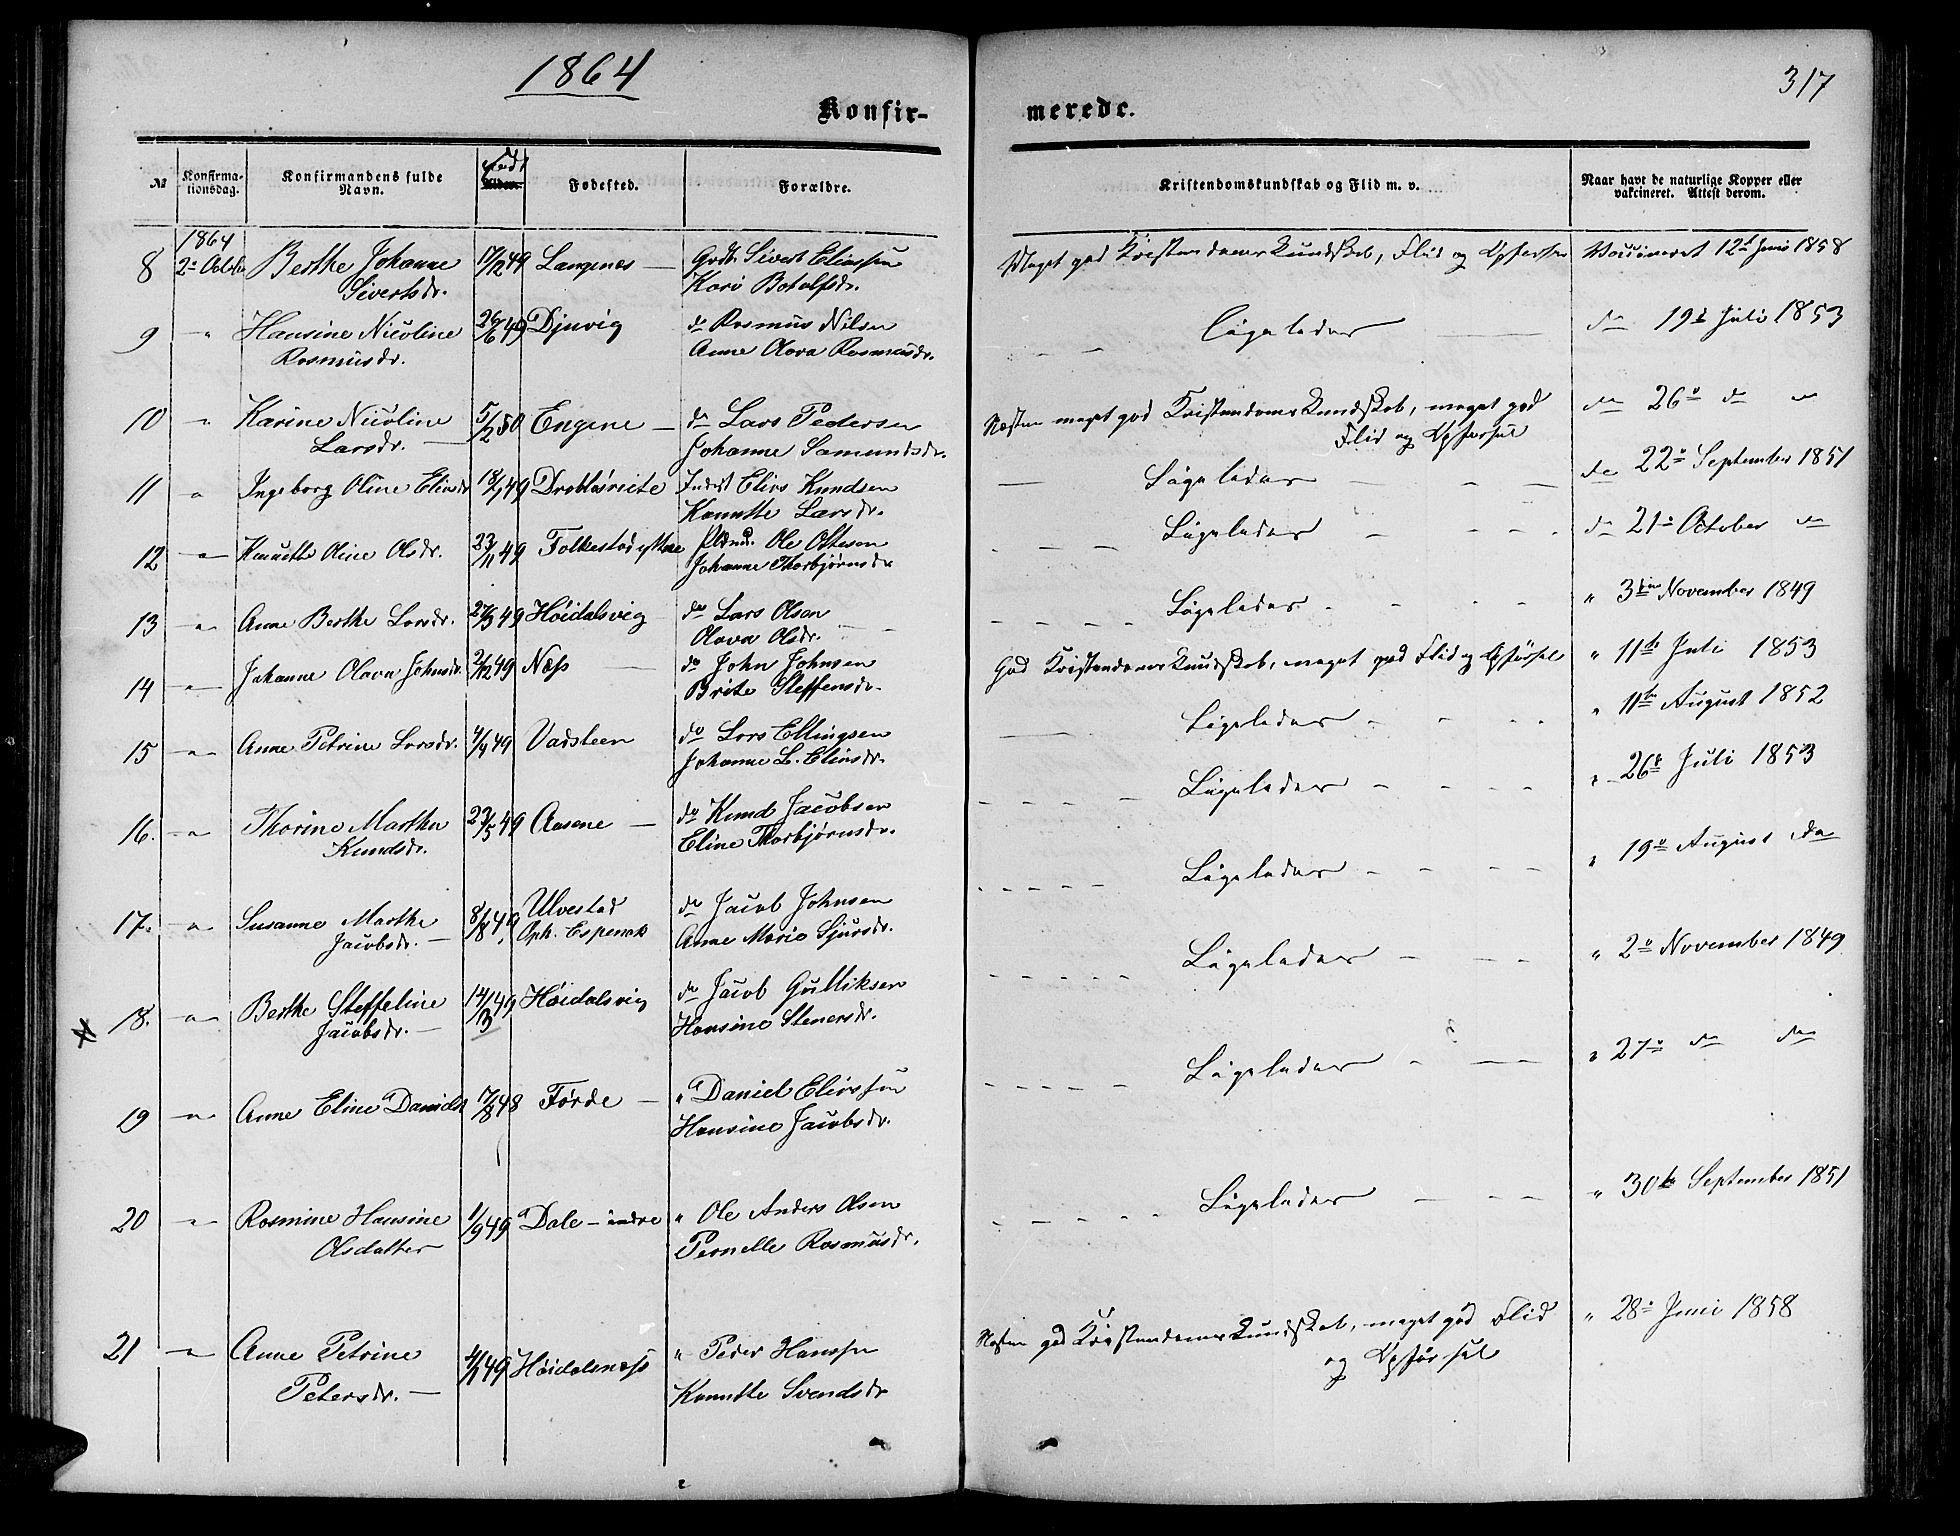 1864
317
Konfir- merede.
№ Konfirmationsdag. Konfirmandens fulde Navn. Født Alder. Fødested. Forældre. Kristendomskundskab og Flid m. v. Naar havt de naturlige Kopper eller vakcineret. Attest derom.
1864
8 2den October Berthe Johanne 17/12 49 Langenes — Gbr. Sivert Eliassen Meget god Kristendomskundskab, Flid og Opførsel Vaccineret 12te Juni 1858
Sivertsdr. Kari Botolfsdr.
9 " Hansine Nicoline 26/6 49 Djuvig do Rasmus Nilsen Ligeledes do 19de Juli 1853
Rasmusdr. Anne Olava Rasmusdr.
10 " Karine Nicoline 5/2 50 Engene — do Lars Pedersen Næsten meget god Kristendomskundskab, meget god do 26de do "
Larsdr. — Johanne Samundsdr. Flid og Opførsel
11 " Ingeborg Oline Eliasdr 18/2 49 Inderst Elias Knudsen Ligeledes do 22de September 1851
Kanutte Larsdr.
12 " Kanutte Oline Olsdr. 23/11 49 Folkestad Ole Ottesen Ligeledes do 21de October do
Johanne Thorbjørnsdr
13 " Anne Berthe Larsdr. 27/3 49 Høidalsvig do Lars Olsen Ligeledes " 3die November 1849
Olava Olsdr.
14 " Johanne Olava Johnsdr. 2/12 49 Næs — do John Johnsen God Kristendomskundskab, meget god Flid og Opførsel " 11te Juli 1853
Brite Steffensdr.
15 " Anne Petrine Larsdr. 4/4 49 Vadsteen do Lars Ellingsen Ligeledes " 11te August 1852
Johanne L. Eliasdr.
16. " Thorine Marthe 23/5 49 Aasene — do Knud Jacobsen Ligeledes " 26de Juli 1853
Knudsdr. Eline Thorbjørnsdr.
17. " Susanne Marthe 8/8 49 Ulvestad do Jacob Johnsen Ligeledes " 19de August do
Jacobsdr. — Oph. Espenak Anne Marie Sjursdr.
18. " Berthe Steffeline 14/3 49 Høidalsvig do Jacob Gulliksen Ligeledes " 2de November 1849
Jacobsdr. — Hansine Stenersdr.
19 " Anne Eline Danielsd 17/8 48 Førde — " Daniel Eliassen Ligeledes " 27de do do
Hansine Jacobsdr.
20 " Rasmine Hansine 1/9 49 Dale - indre " Ole Anders Olsen Ligeledes " 30te September 1851
Olsdatter Pernelle Rasmusdr.
21 " Anne Petrine 4/1 49 Høidalsnæs " Peder Hansen Næsten god Kristendomskundskab, meget god Flid " 28de Juni 1858
Petersdr. — Kanutte Svendsdr og Opførsel